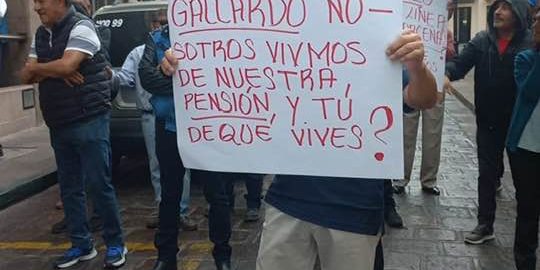 GALLARDO NO—
SOTROS VIVMOS
DE NUESTRA,
PENSIÓN, Y TÚ
DE QUÉ VIVES?